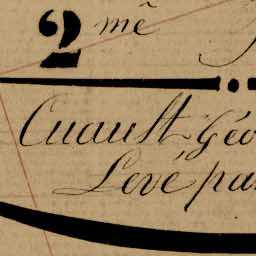 2 mê
Cuault Géo
Levé par